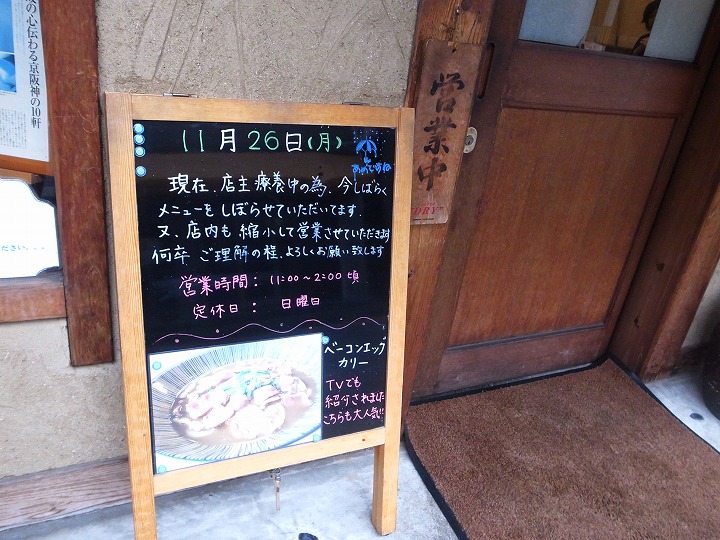 の心伝わる京阪神の10軒
ださい。
営業中
11月26日(月)
あめですね
現在、店主療養中の為、今しばらく
メニューをしぼらせていただいてます。
又、店内も縮小して営業させていただきます
何卒ご理解の程、よろしくお願い致します
営業時間: 11:00~2:00頃
定休日: 日曜日
ベーコンエッグ
カリー
TVでも
紹介されました
こちらも大人気!!